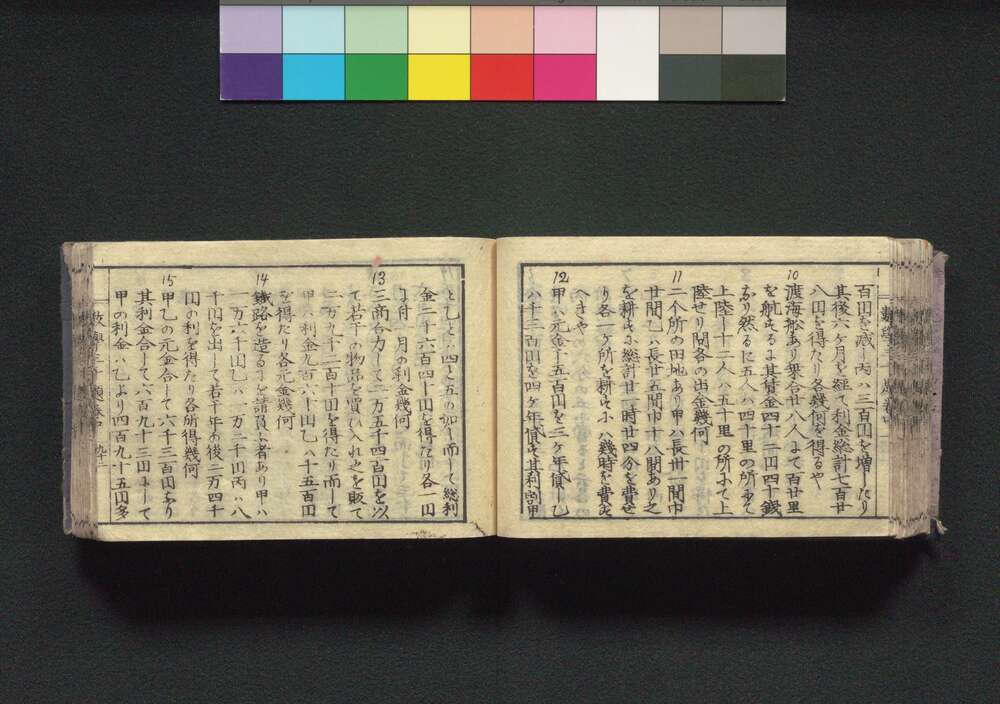 百円を減し丙ハ三百円を増したり
其後六ヶ月を経て利金総計七百廿
八円を得たり各幾何を得るや
10
渡海船あり乗合廿八人にて百廿里
を航するに其賃金四十二円四十銭
なり然るに五人ハ四十里の所にて
上陸し十二人ハ五十里の所にて上
陸せり問各の出金幾何
11
二个所の田地あり甲ハ長卅一間巾
廿間乙ハ長廿五間巾十八間あり之
を耕すに総計廿一時廿四分を費せ
り各一ヶ所を耕すにハ幾時を費す
へきや
12
甲ハ元金千五百円を三ヶ年貸し乙
ハ千三百円を四ヶ年貸す其利割甲
と乙とハ四と五の如し而して総利
金二千六百四十円を得たり各一円
に付一月の利金幾何
13
三商合力して二万五千四百円を以
て若干の物品を買ひ入れ之を販て
二万九千二百十円を得たり而して
甲ハ利金九百六十円乙ハ千五百円
を得たり各元金幾何
14
鐵路を造るヿを請負ふ者あり甲ハ
一万六千円乙ハ一万二千円丙ハ八
千円を出して若干年の後二万四千
円の利を得たり各所得幾何
15
甲乙の元金合して六千三百円あり
其利金合して六百九十三円にして
甲の利金ハ乙より四百九十五円多